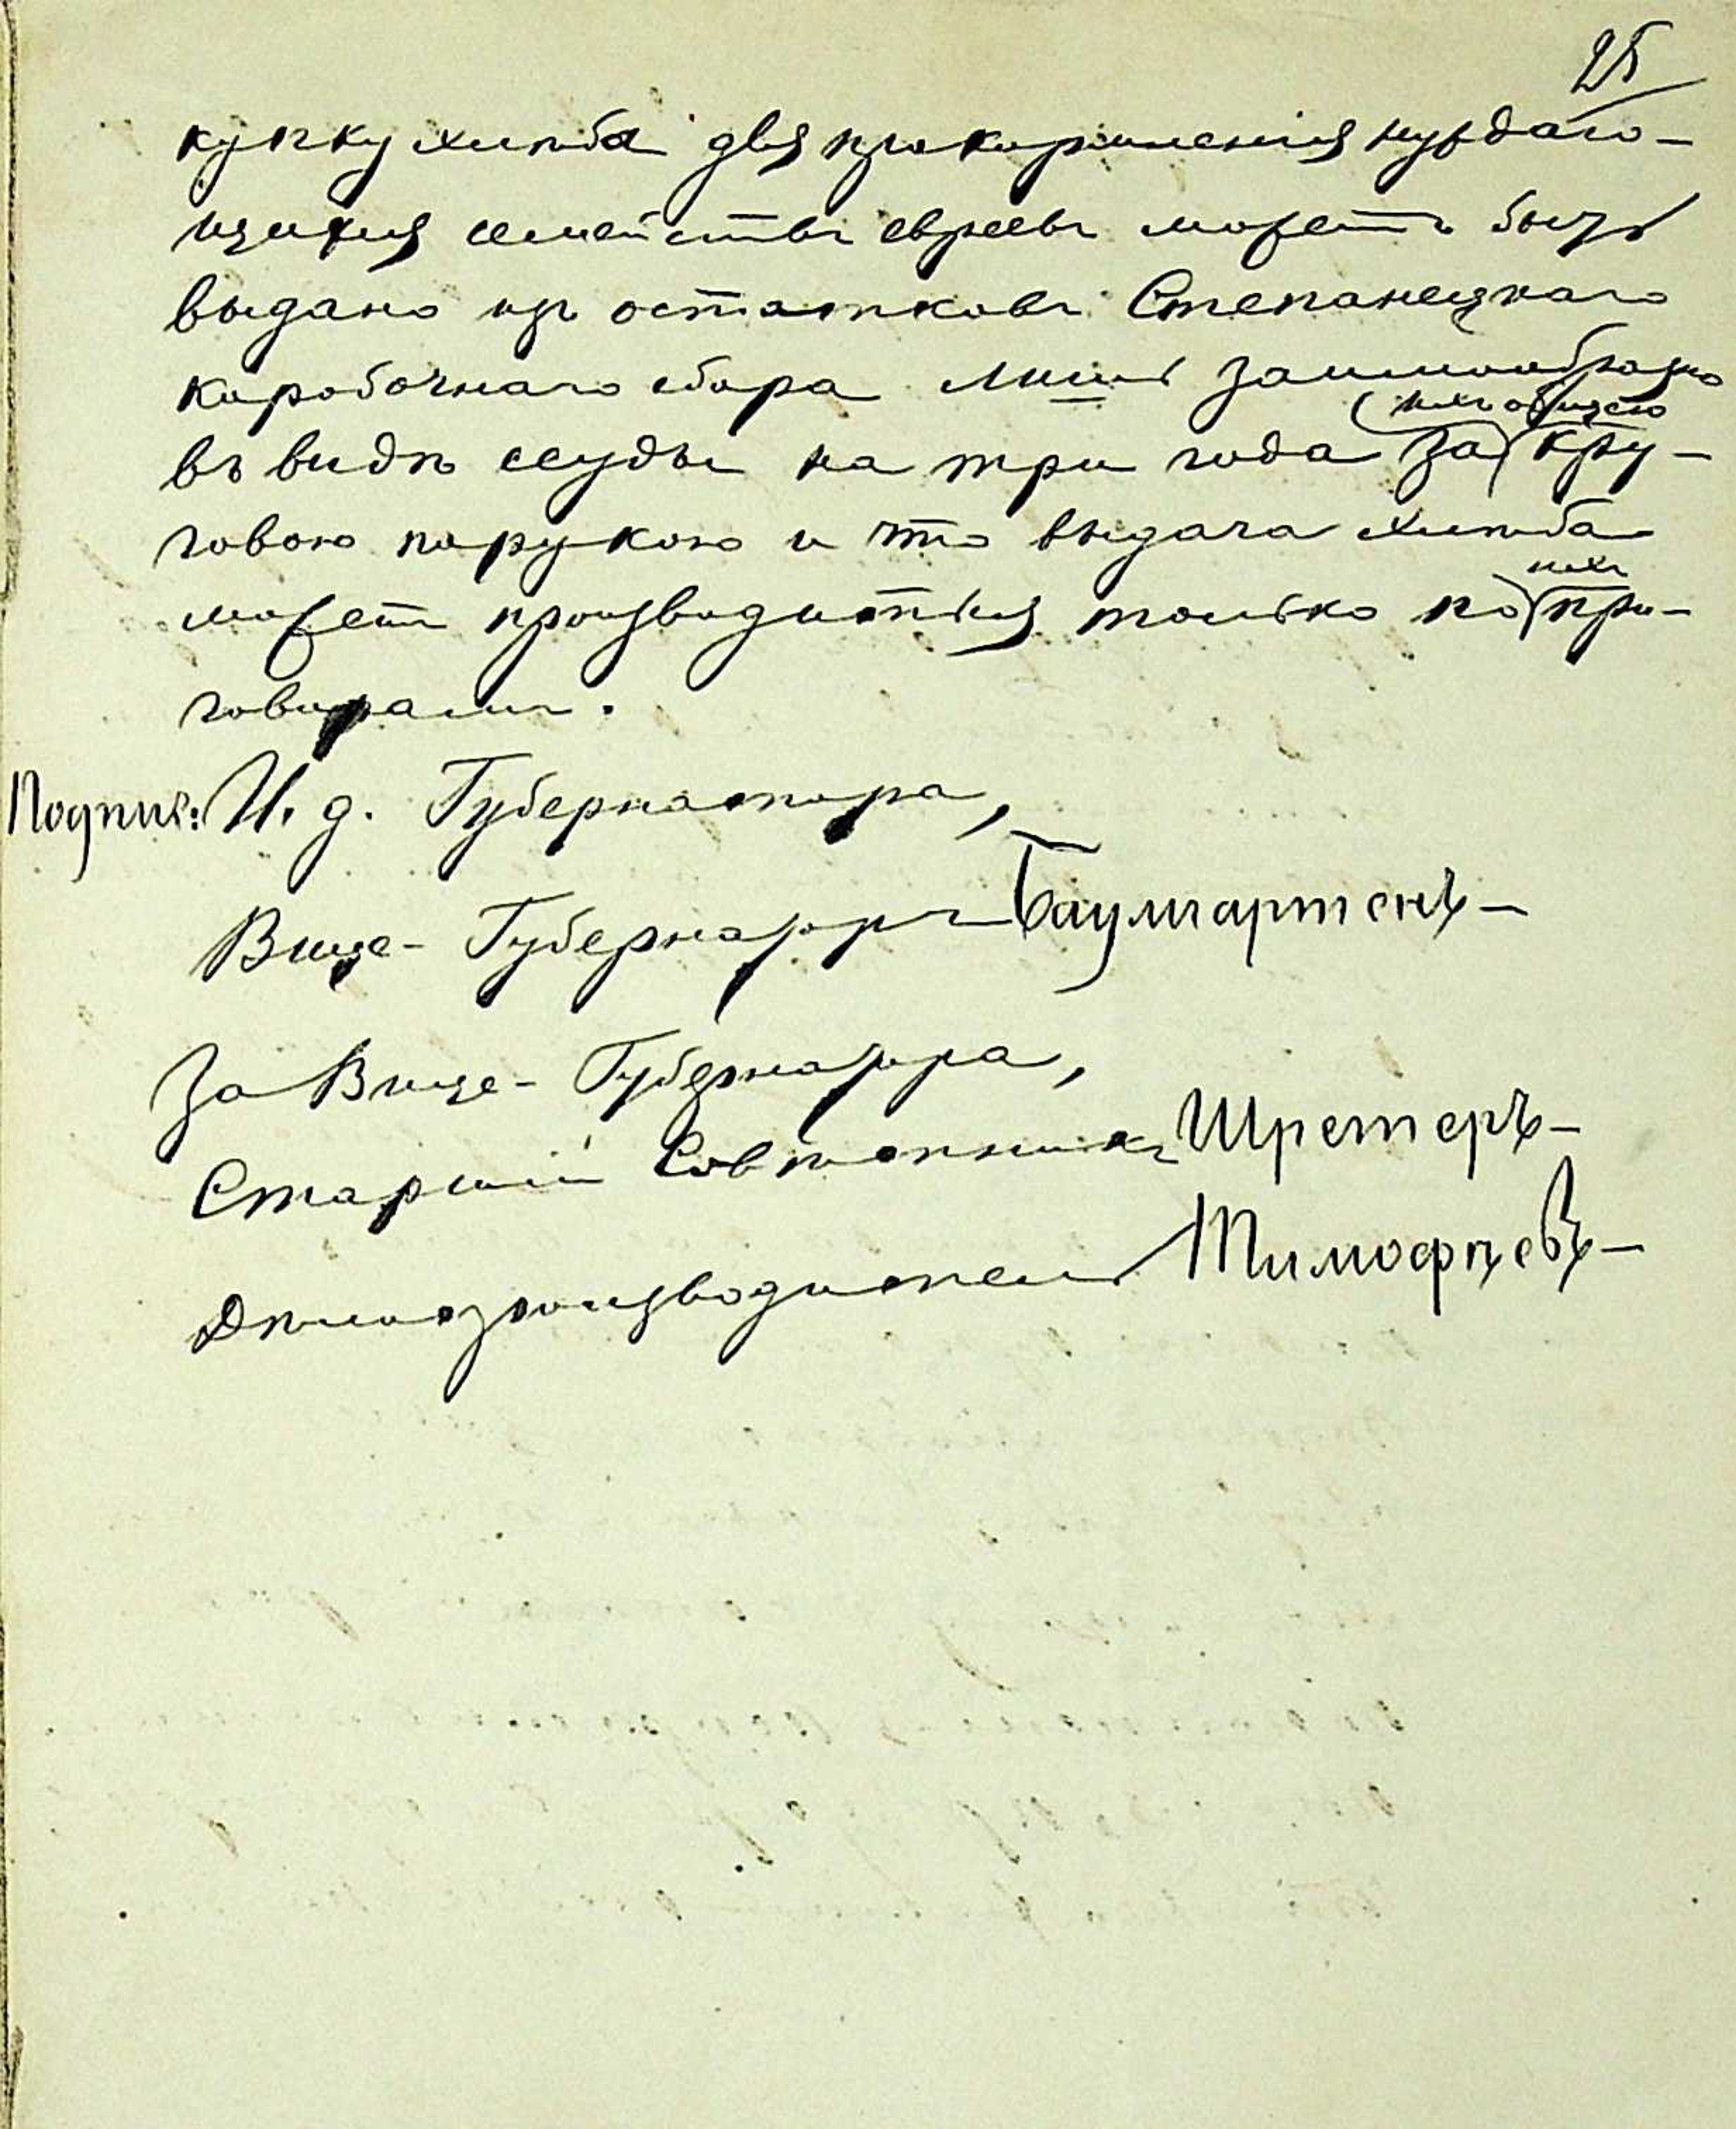 25
купку хлѣба для прокормленія нуждаю-
щихся семействъ евреевъ можетъ быть
выдано изъ остатковъ Степанецкаго
коробочнаго сбора лишь заимообразно
ихъ общею
въ видѣ ссуды на три года за кру-
говою порукою и что выдача хлѣба
ихъ
можетъ производиться только по при-
говорамъ.
Подпис: И. д. Губернатора,
Вице-Губернаторъ Баумгартенъ
За Вице-Губернатора,
Старшій Совѣтникъ Шретеръ
Дѣлопроизводитель Тимофѣевъ